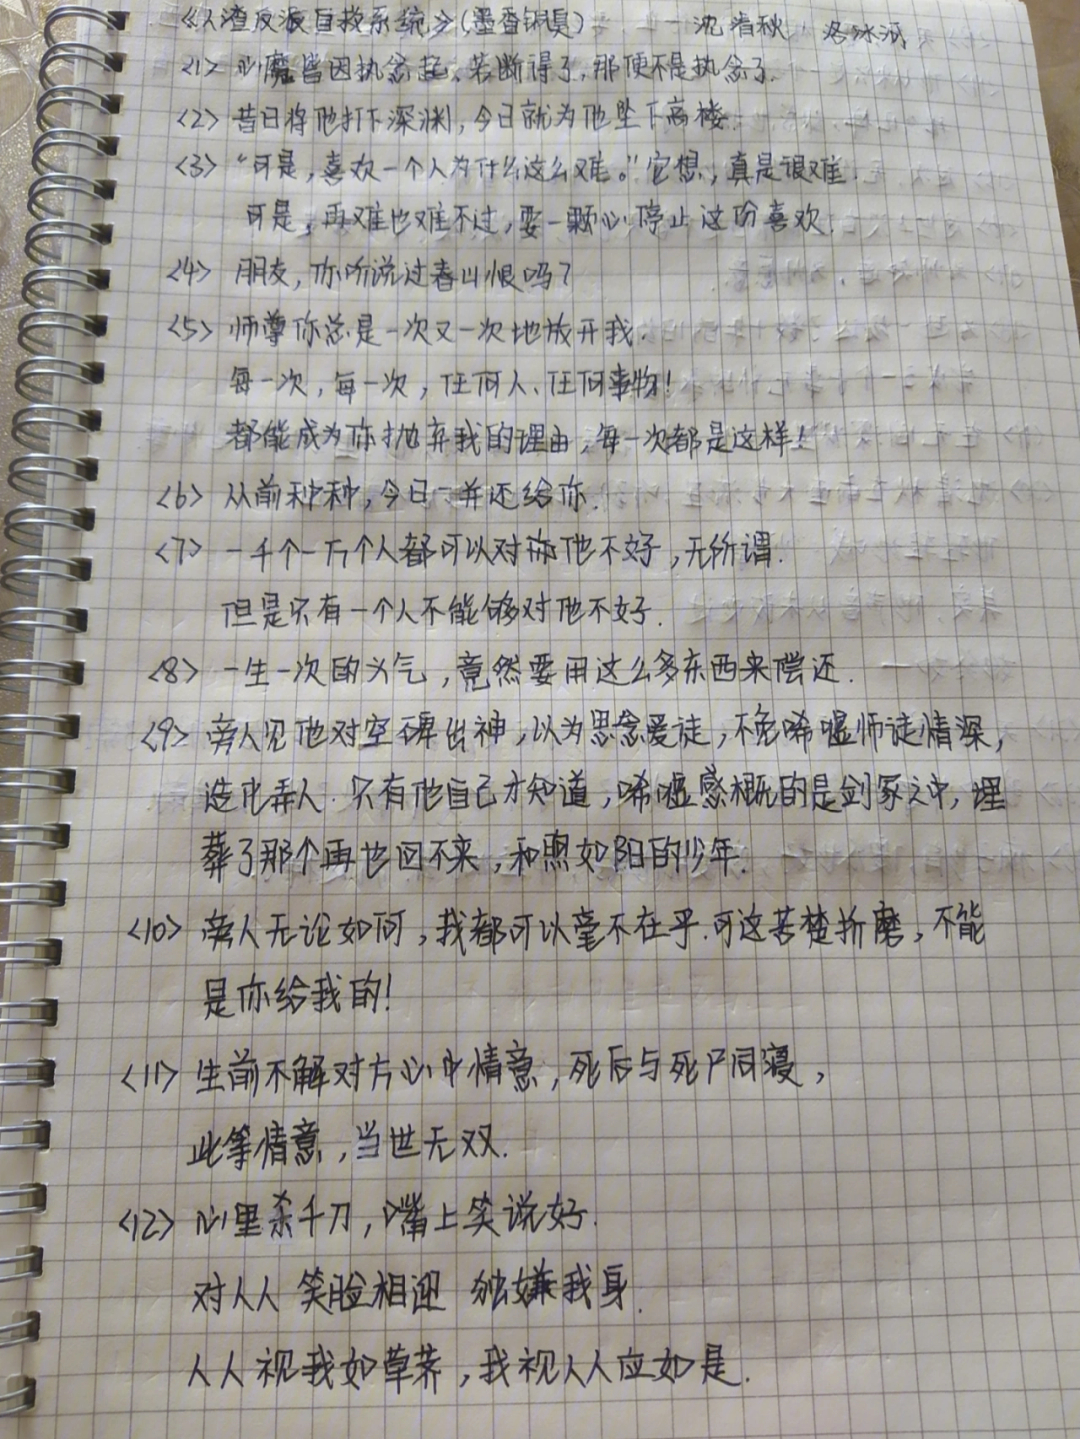 《人渣反派自救系统》(墨香铜臭) 沈清秋 洛冰河
<1> 心魔皆因执念起、若断得了,那便不是执念了.
<2> 昔日将他打下深渊,今日就为他坠下高楼.
<3> “可是,喜欢一个人为什么这么难。”它想,真是很难.
可是,再难也难不过,要一颗心停止这份喜欢.
<4> 朋友,你听说过春山恨吗?
<5> 师尊你总是一次又一次地放开我.
每一次,每一次,任何人、任何事物!
都能成为你抛弃我的理由,每一次都是这样!
<6> 从前种种,今日一并还给你.
<7> 一千个一万个人都可以对他不好,无所谓.
但是只有一个人不能够对他不好.
<8> 一生一次的义气,竟然要用这么多东西来偿还.
<9> 旁人见他对空碑出神,以为思念爱徒,不免唏嘘师徒情深,
造化弄人.只有他自己才知道,唏嘘感概的是剑冢之中,埋
葬了那个再也回不来,和煦如阳的少年.
<10> 旁人无论如何,我都可以毫不在乎.可这苦楚折磨,不能
是你给我的!
<11> 生前不解对方心中情意,死后与死尸同寝,
此等情意,当世无双.
<12> 心里杀千刀,嘴上笑说好.
对人人笑脸相迎 独嫌我身.
人人视我如草芥,我视人人应如是.